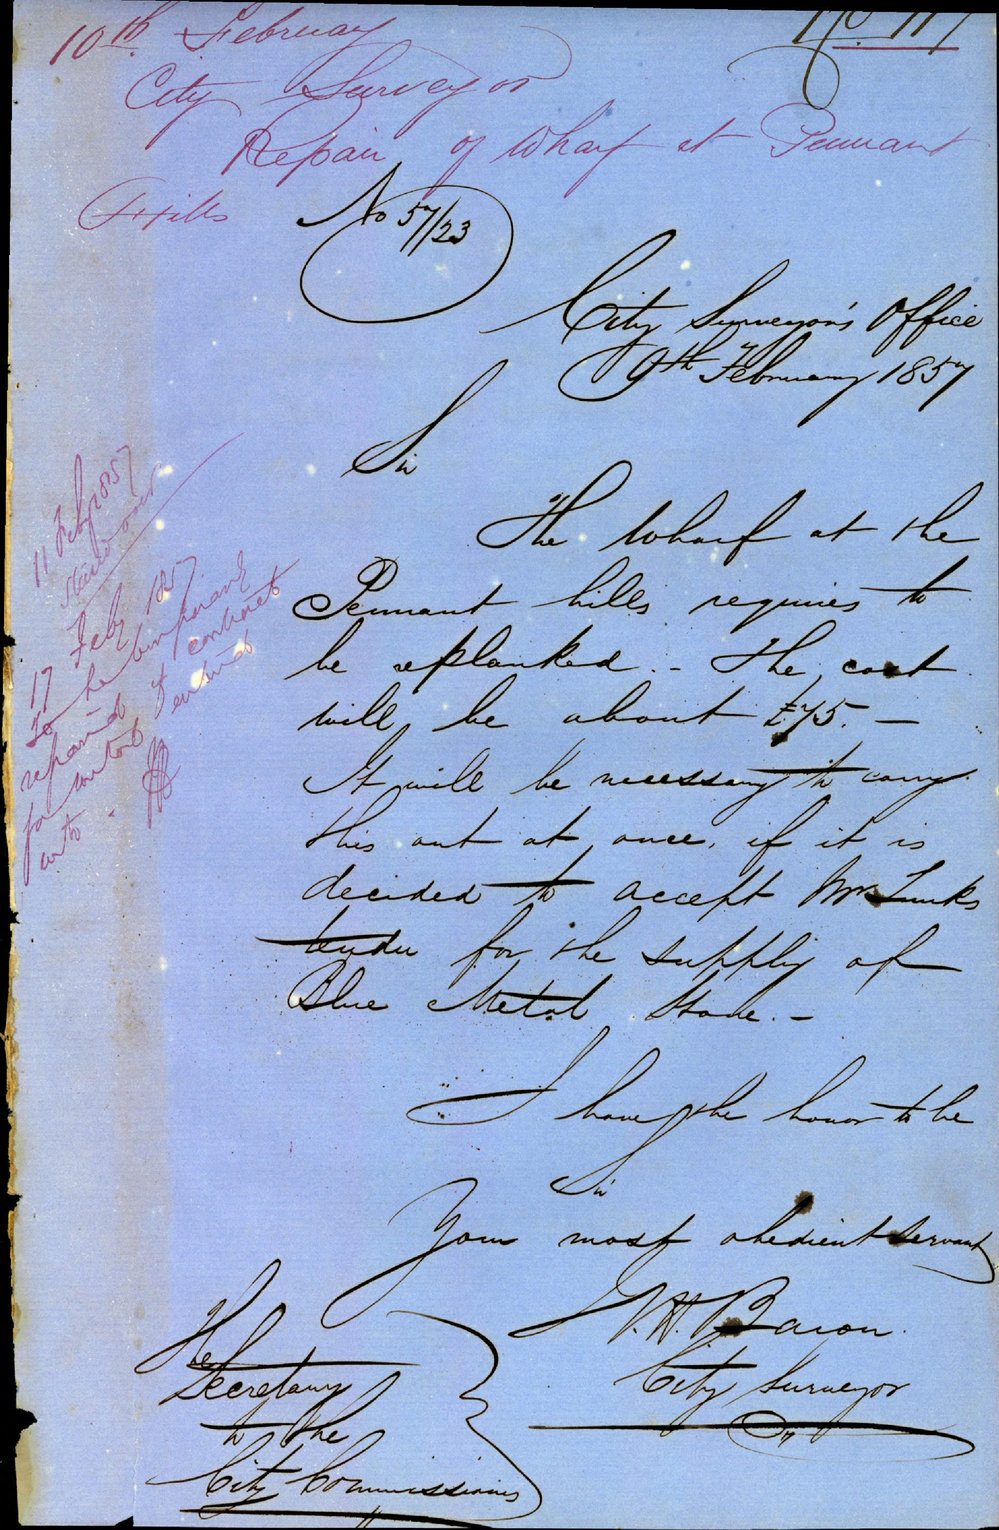 No 117
10th February
City Surveyor
Repair of Wharf at Pennant
Hills
No 57/23
City Surveyor's Office
9th February 1857
Sir
The Wharf at the
Pennant hills requires to
be replanked. - The cost
will be about £75. -
It will be necessary to carry
this out at once, if it is
decided to accept Mr Lunks
tender for the supply of
Blue Metal Stone. -
I have the honor to be
Sir
Your most obedient servant
W. H. Baron.
City Surveyor
The
Secretary
to the
City Commissioners
11 Feby 1857
Stand over
17 Feby 1857
To be temporarily
repaired if contract
for metal entered
into.